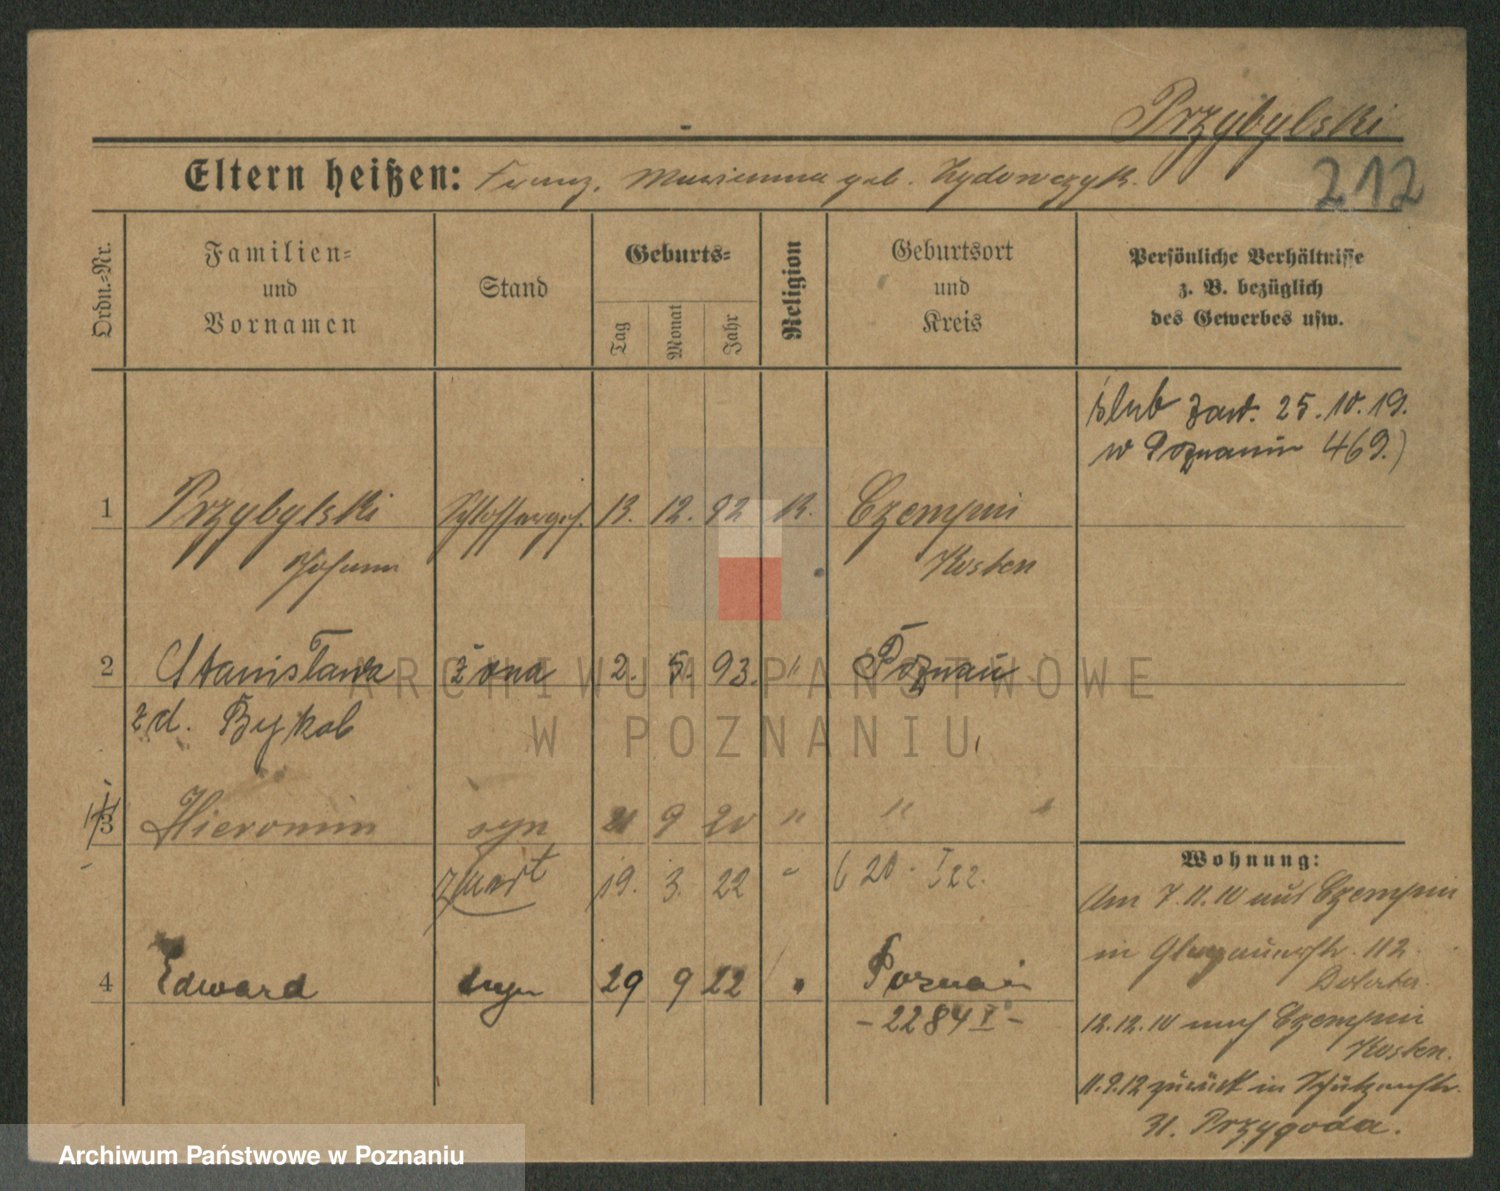 Przybylski
Eltern heißen: Franz, Marianna geb. Zydowczyk.
212
Ordn.-Nr.
Familien- und Vornamen
Stand
Geburts-
Tag
Monat
Jahr
Religion
Geburtsort und Kreis
Persönliche Verhältnisse z. B. bezüglich des Gewerbes usw.
ślub zaw. 25.10.19.
w Poznaniu 469.)
1 Przybylski Schlosserges. 13. 12. 92 K. Czempin
Johann Kosten
2 Stanisława żona 2. 5. 93. " Poznań
zd. Bykob
3 Hieronim syn 21 9 20 " " "
zmarł 19. 3. 22 "
4 Edward syn 29 9 22 " Poznań
- 2284 I -
Wohnung:
Am 7.11.10 aus Czempin
in 112.
12.12.10 nach Czempin
Kosten.
11.9.12 zurück in Schützenstr.
31. Przygoda.
ARCHIWUM PAŃSTWOWE
W POZNANIU
Archiwum Państwowe w Poznaniu